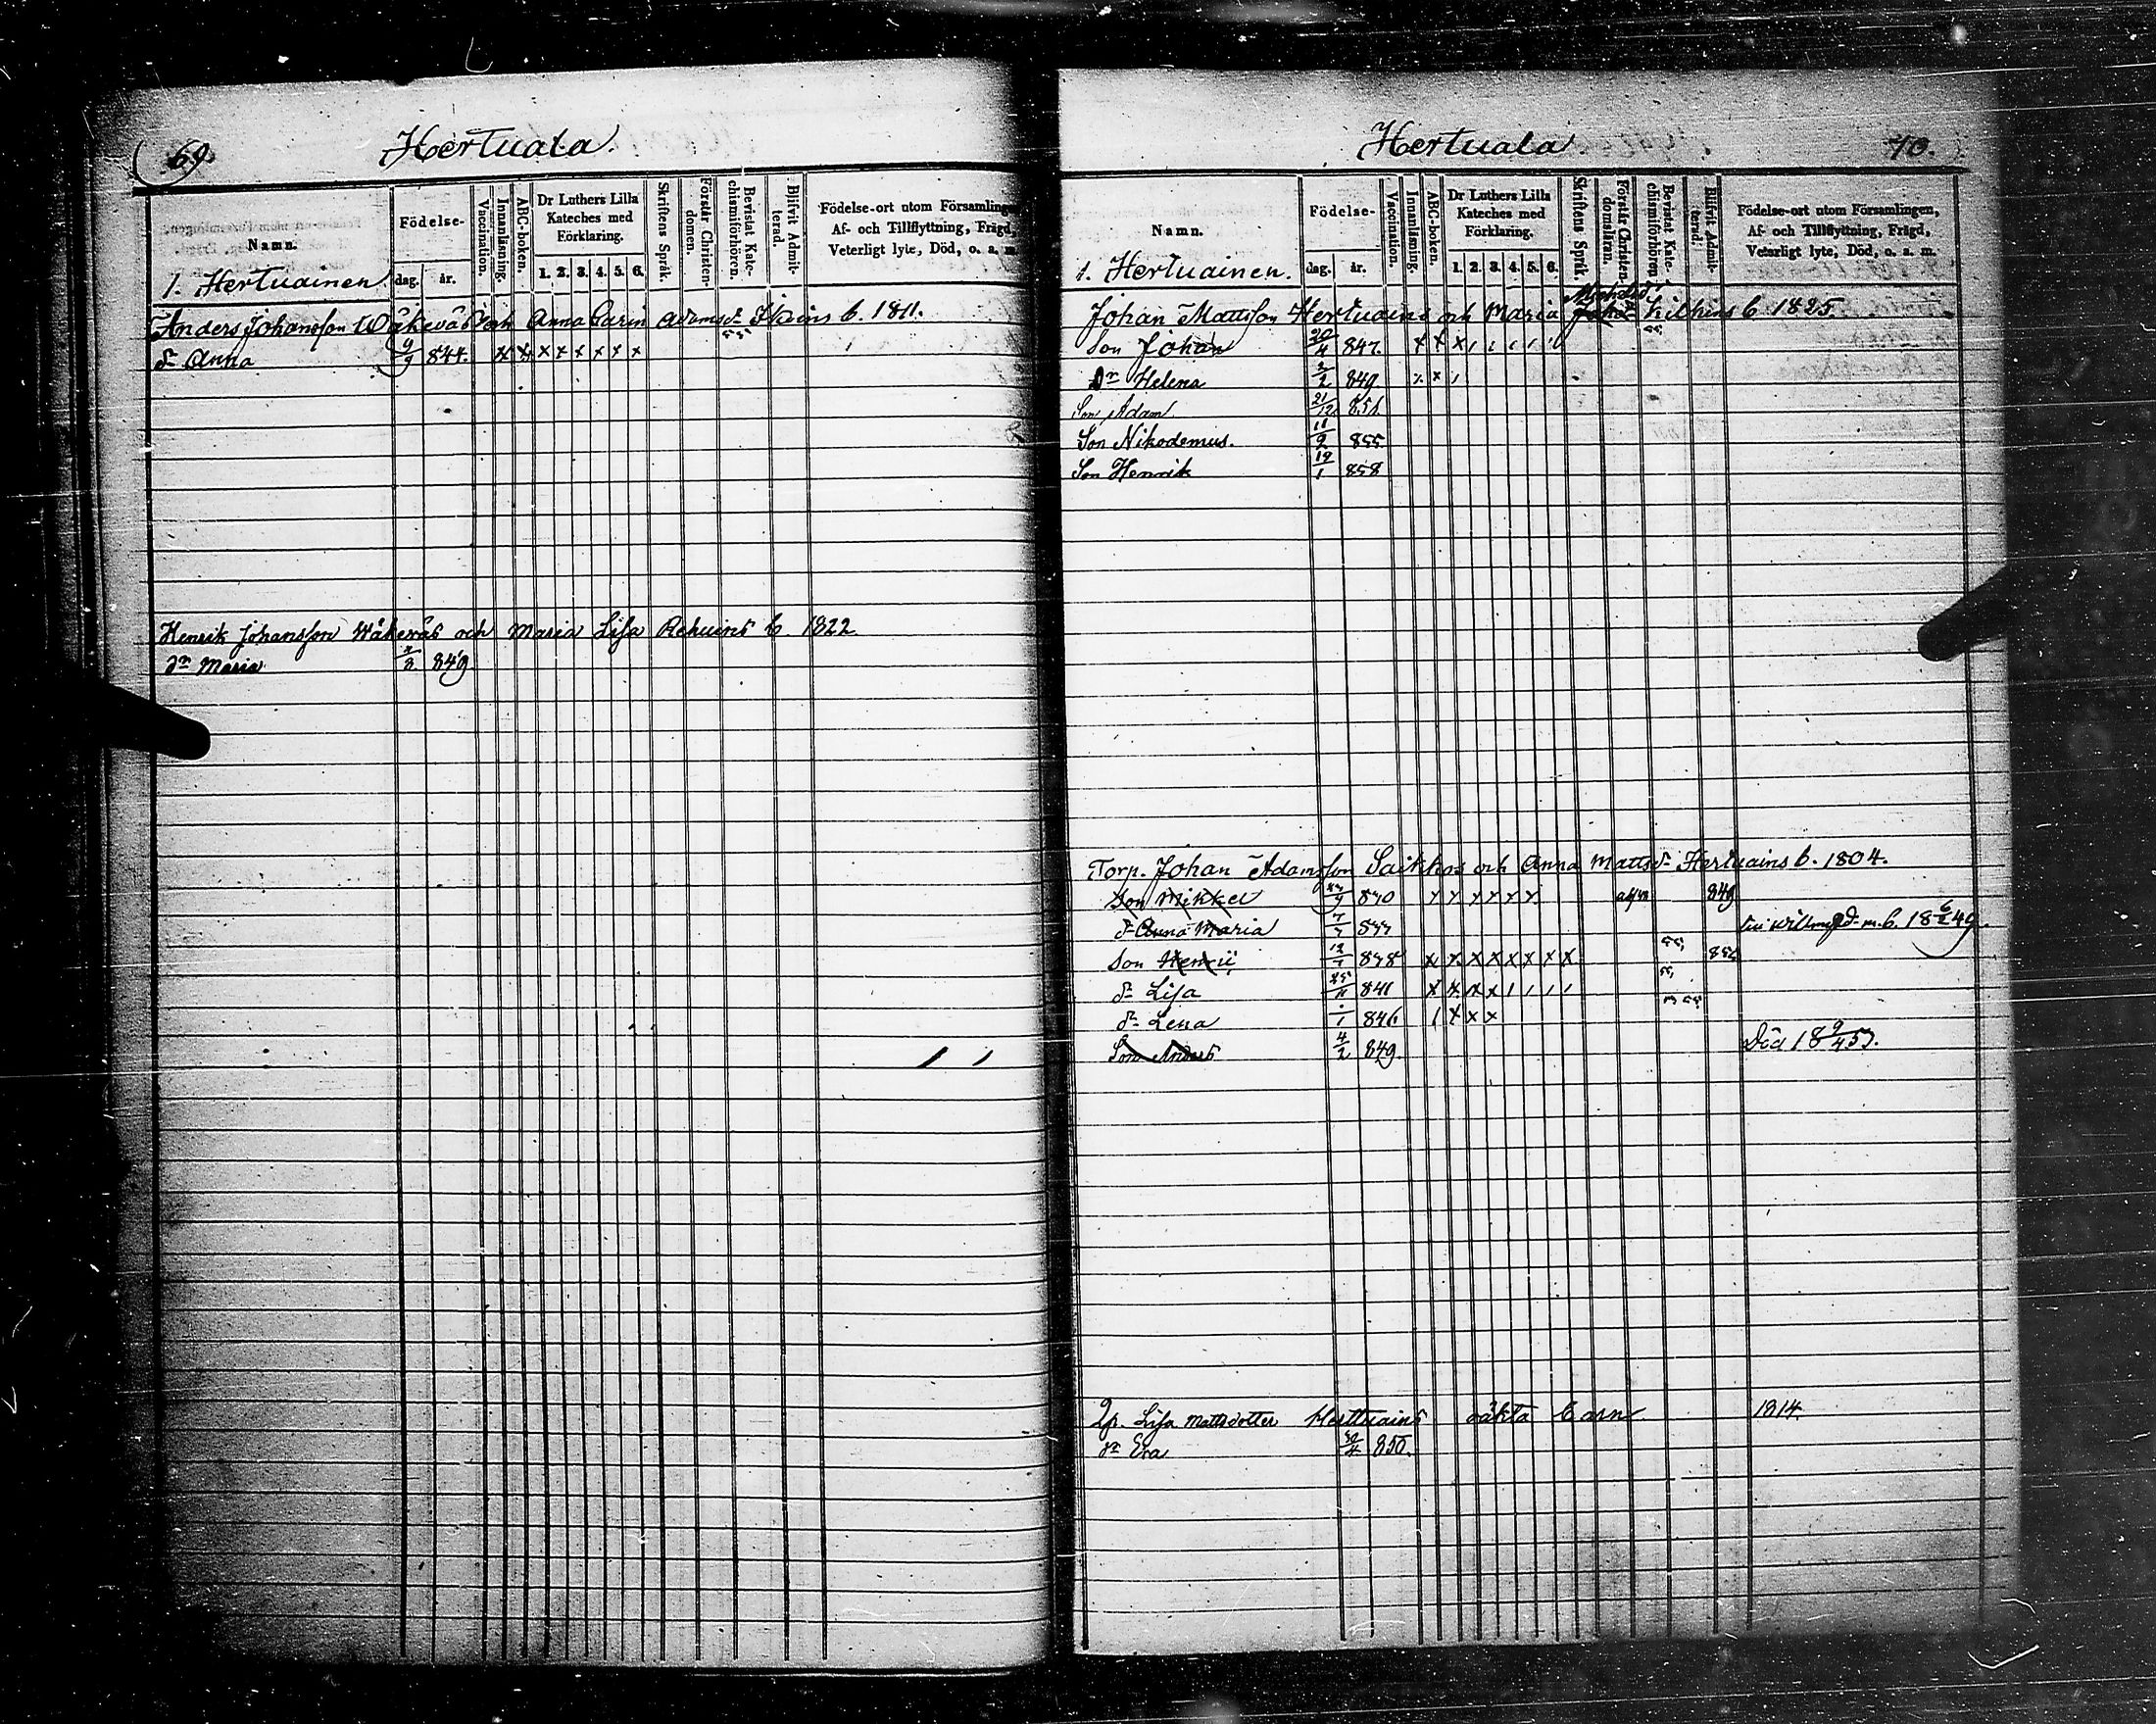 69 Hertuala
Namn. Födelse- dag. år. Vaccination. Innanläsning. ABC-boken. Dr Luthers Lilla Kateches med Förklaring. 1. 2. 3. 4. 5. 6. Skriftens Språk. Förstår Christendomen. Bevistat Katechismiförhören. Blifvit Admitterad. Födelse-ort utom Församlingen, Af- och Tillflyttning, Frägd, Veterligt lyte, Död, o. a. m.
1. Hertuainen
Anders Johansson Wäkeväs och Anna Carin Adamsdr Ikains b. 1811.
dr Anna 9/9 844. x x x x x x x x
Henrik Johansson Wäkeväs och Maria Lisa Rehuins b. 1822
dr Maria 849
Hertuala 70.
Namn. Födelse- dag. år. Vaccination. Innanläsning. ABC-boken. Dr Luthers Lilla Kateches med Förklaring. 1. 2. 3. 4. 5. 6. Skriftens Språk. Förstår Christendomsläran. Bevistat Katechismiförhören. Blifvit Admitterad. Födelse-ort utom Församlingen, Af- och Tillflyttning, Frägd, Vetarligt lyte, Död, o. a. m.
1. Hertuainen.
Johan Mattsson Hertuains och Maria b. 1825
Son Johan 20/4 847. x x x
Dr Helena 2/2 849 x x
Son Adam 21/12 851
Son Nikodemus. 11/2 855
Son Henrik 19/1 858
Torp. Johan Adamsson Saikkos och Anna Mattsdr Hertuains b. 1804.
Son Mikkel 849
dr Anna Maria m. b. 18 6/2 49.
Son 12/1 838 x x x x x x x x
dr Lisa 25/11 841 x x x x
dr Lena 846 x x x
Son Anders 4/2 849 Död 18 9/4 57.
Qp. Lisa Mattsdotter Herttuains oäkta barn 1814.
dr Eva 850.